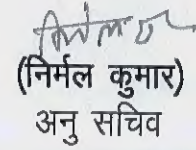 (निर्मल कुमार)
अनु सचिव